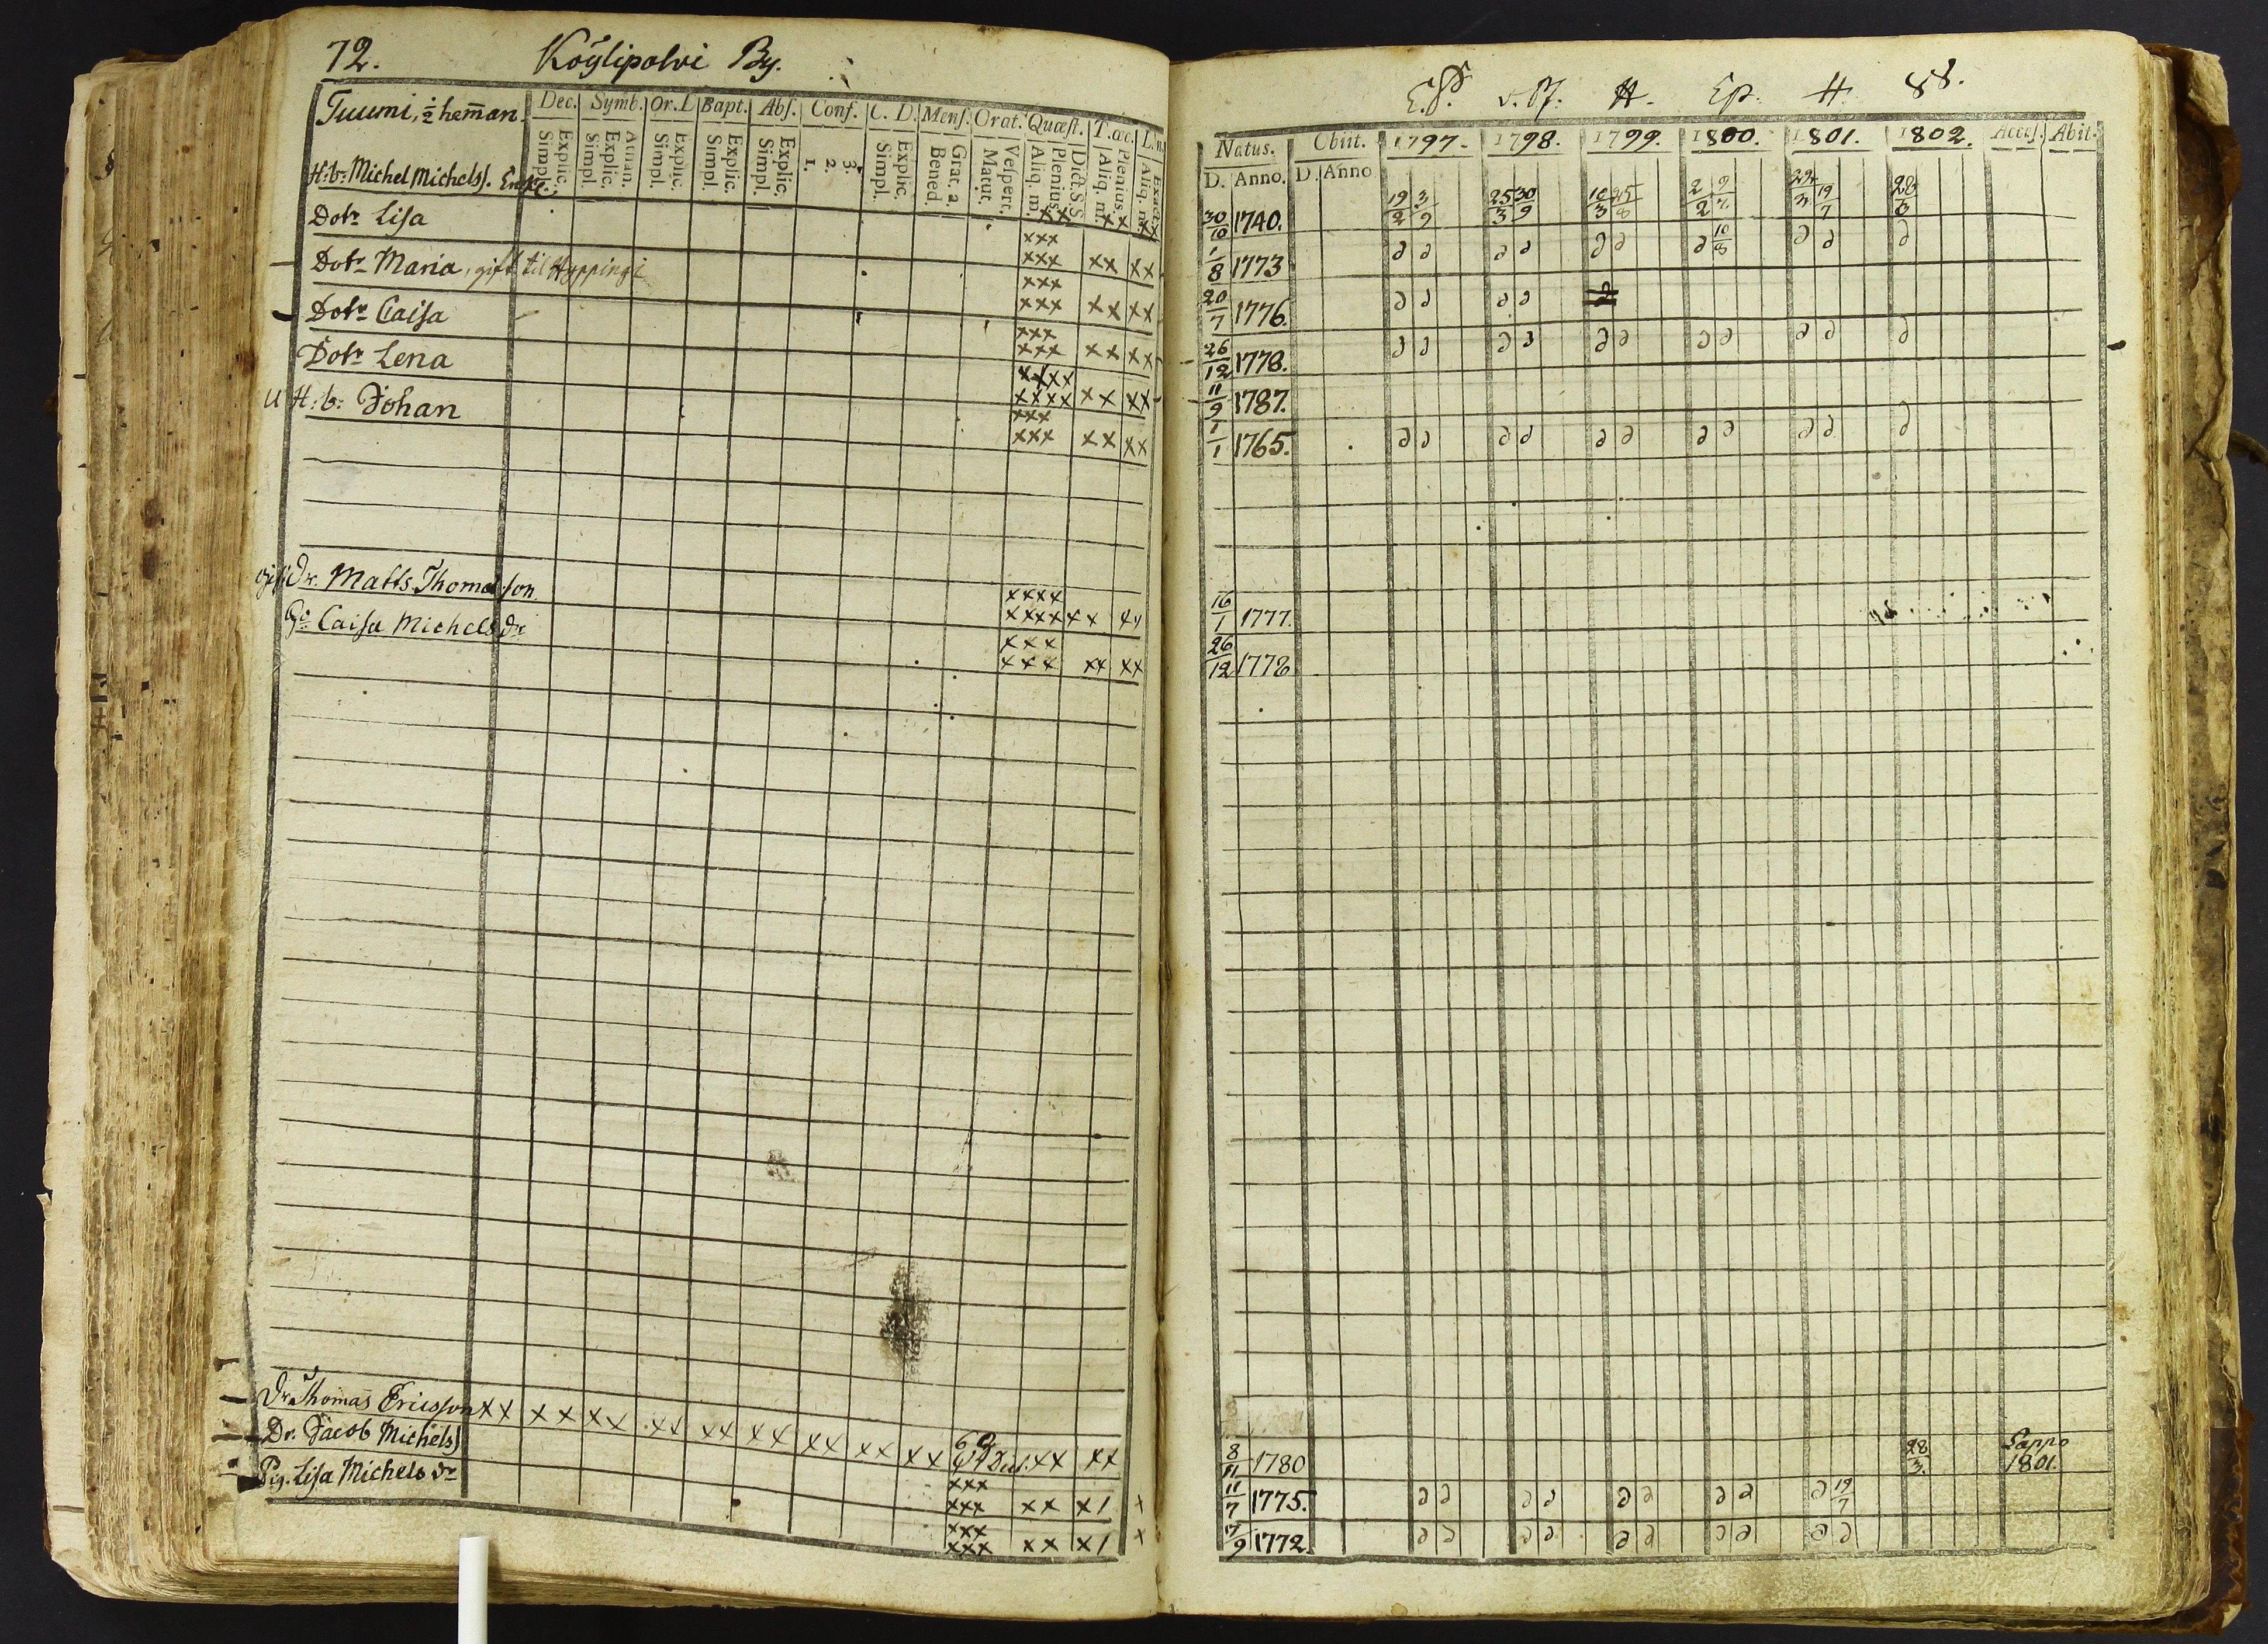 72. Köylipolvi By.
Tuumi, ½ heman. Dec. Symb. Or. D Bapt. Abs. Conf. C. D. Mens. Orat. Quæst. T. œc.
Explic. Simpl. Athan. Explic. Simpl. Explic. Simpl. Explic. Simpl. Explic. Simpl. 3. 2. 1. Explic. Simpl. Grat. a. Bened. Vespert. Matut. Dict. S.S Plenius Aliq. m. Plenius Aliq. m. Exact. Aliq. m.
H:b: Michel Michelss. Enkl. xx xx xx
Dotr Lisa xxx xxx xx xx
Dotr Maria, gift til Hyppingi xxx xxx xx xx
Dotr Caisa xxx xxx xx xx
Dotr Lena xxxx xxxx xx xx
U H:b: Johan xxx xxx xx xx
gift Dr. Matts Thomasson xxxx xxxx xx xx
Caisa Michelsdr xxx xxx xx xx
Dr. Thomas Ericsson xx xx xx xx xx xx xx xx xx xx xx
Dr. Jacob Michelss xxx xxx xx x/ x
Pig. Lisa Michelsdr xxx xxx xx x/ x
H. Ep. H.
Natus. Obiit. 1797. 1798. 1799. 1800. 1801. 1802. Acces. Abit.
D. Anno. D. Anno
30/10 1740. 19/2 3/9 25/3 30/9 10/3 25/8 19/7 28/3
1/8 1773 10/8
20/7 1776.
26/12 1778.
11/9 1787.
1/1 1765.
16/1 1777.
26/12 1778
8/11 1780 28/3. Lappo 1801.
11/7 1775. 19/7
17/9 1772.